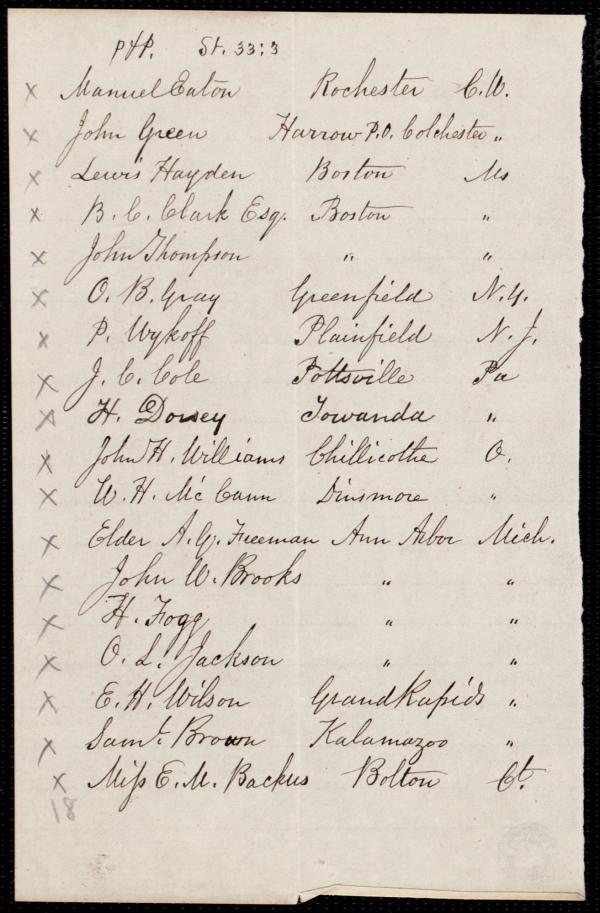 P & P. St. 33:3
x Manuel Eaton Rochester C.W.
x John Green Harrow P.O. Colchester "
x Lewis Hayden Boston Ms
x B. C. Clark Esq. Boston "
x John Thompson " "
x O. B. Gray Greenfield N.Y.
x P. Wykoff Plainfield N.J.
x J. C. Cole Pottsville Pa
x H. Dorsey Towanda "
x John H. Williams Chillicothe O.
x W. H. McCann Dinsmore "
x Elder A. G. Freeman Ann Arbor Mich.
x John W. Brooks " "
x H. Fogg " "
x O. L. Jackson " "
x E. H. Wilson Grand Rapids "
x Saml. Brown Kalamazoo "
x Miss E. M. Backus Bolton Ct.
18